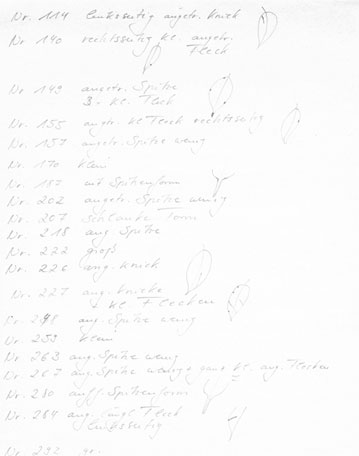 Nr. 114 linksseitig angetr. Knick
Nr. 140 rechtsseitig kl. angetr.
Fleck
Nr. 149 angetr. Spitze
3. kl. Fleck
Nr. 155 angtr. kl Fleck rechtsseitig
Nr. 157 angetr. Spitze wenig
Nr. 170 klein
Nr. 187 mit Spitzenform
Nr. 202 angetr. Spitze wenig
Nr. 207 schlanke Form
Nr. 218 ang. Spitze
Nr. 222 groß
Nr. 226 ang. Knick
Nr. 227 ang. Knicke
+ kl Flecken
Nr. 248 ang. Spitze wenig
Nr. 253 klein
Nr. 263 ang. Spitze wenig
Nr. 267 ang. Spitze wenig + ganz kl. ang. Flecken
Nr. 280 Spitzenform
Nr. 284 ang. längl Fleck
linksseitig
Nr. 292